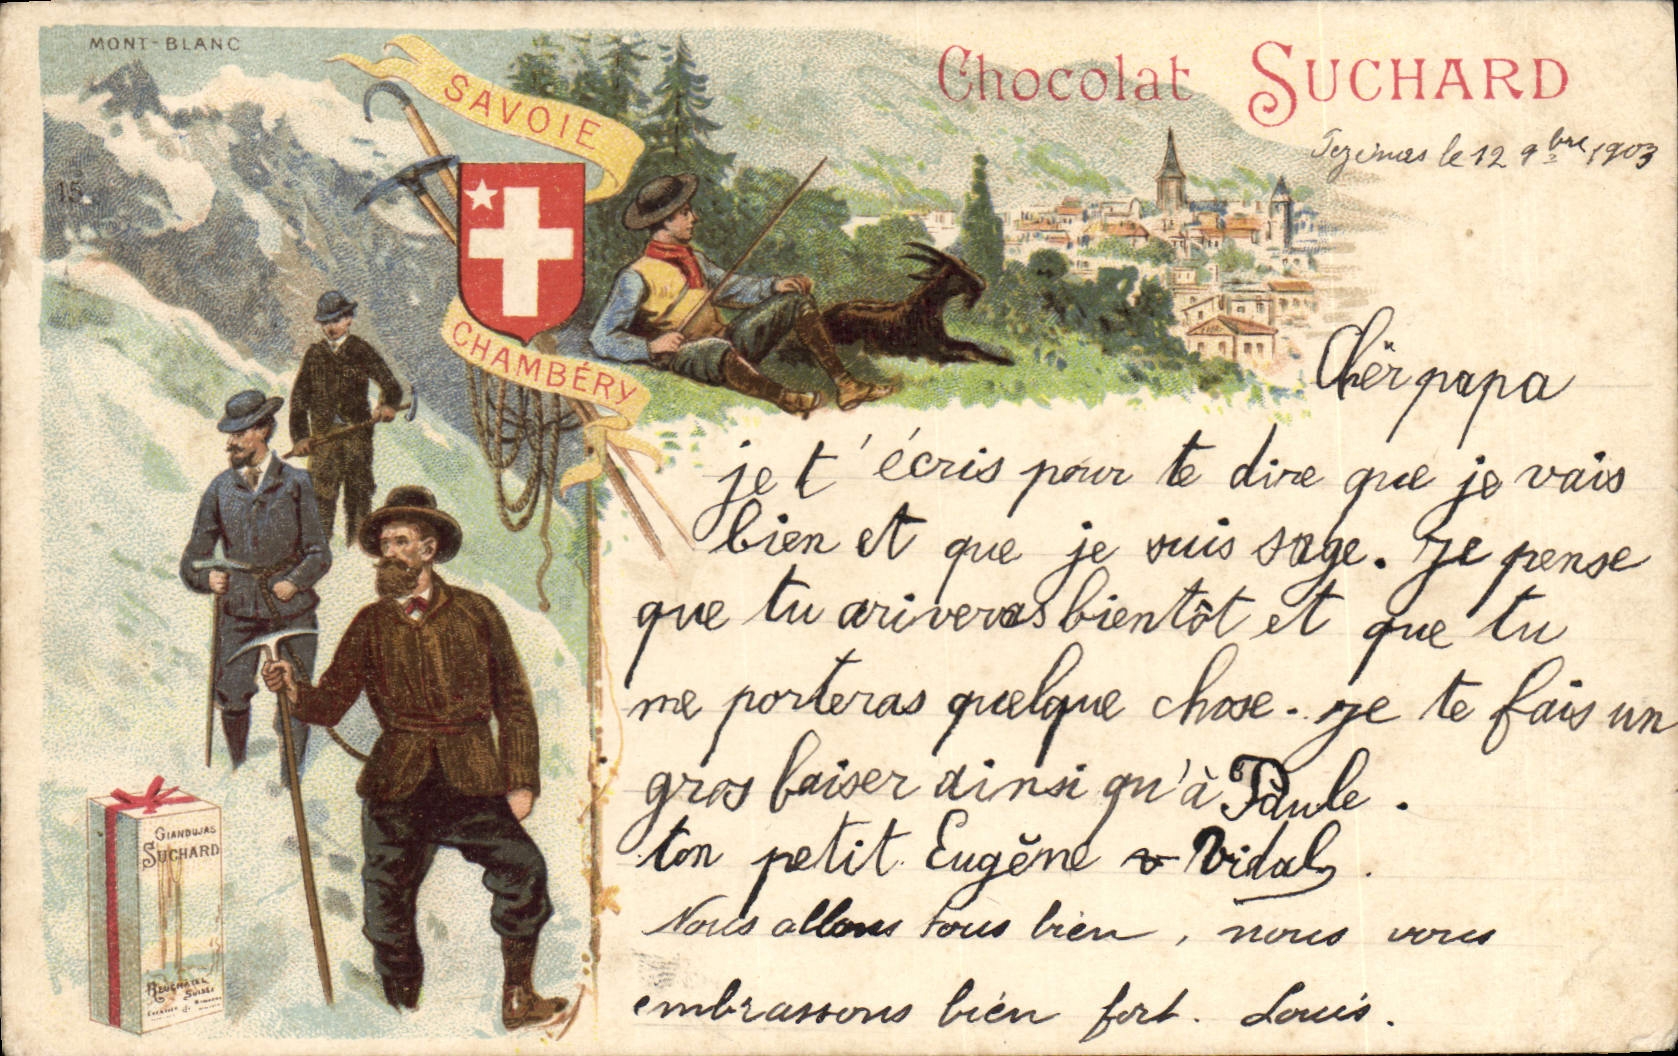 MONT-BLANC
15.
SAVOIE
CHAMBÉRY
Chocolat SUCHARD
le 12 9bre 1903
Chèr papa
je t'écris pour te dire que je vais
bien et que je suis sage. Je pense
que tu ariveras bientôt et que tu
me porteras quelque chose. Je te fais un
gros baiser ainsi qu'à Paule.
ton petit Eugène Vidal.
Nous allons tous bien, nous vous
embrassons bien fort. Louis.
GIANDUJAS
SUCHARD
NEUCHATEL
SUISSE